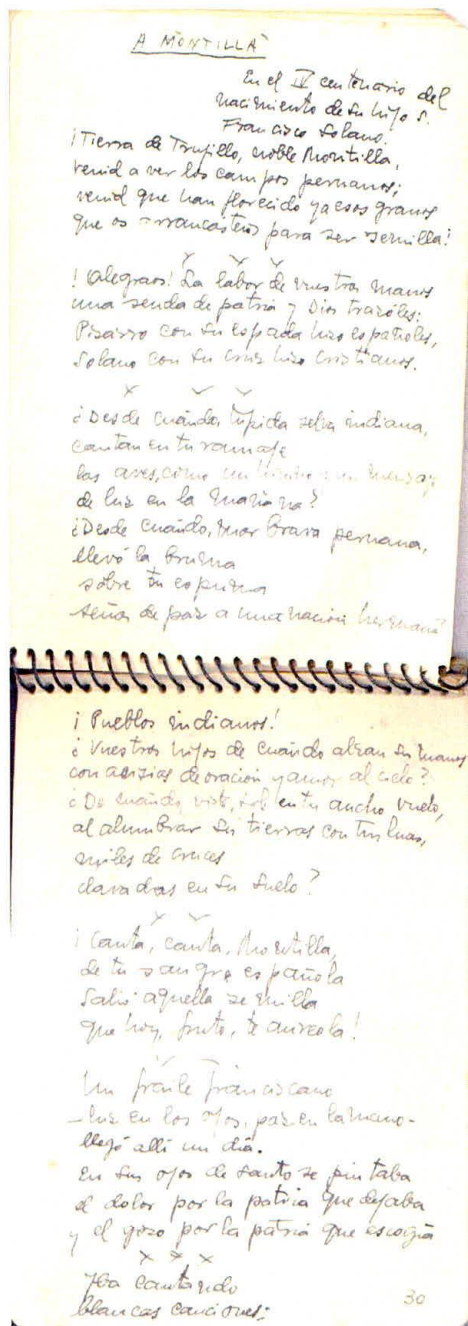 A MONTILLA
En el IV centenario del
nacimiento de su hijo S.
Francisco Solano.
¡Tierra de Trujillo, noble Montilla,
venid a ver los campos peruanos;
venid que han florecido ya esos granos
que os arrancasteis para ser semilla!
x x x
¡Alegraos! La labor de vuestras manos
una senda de patria y Dios trazóles:
Pizarro con su espada hizo españoles,
Solano con su cruz hizo cristianos.
x x x
¿Desde cuándo, tupida selva indiana,
cantan en tu ramaje
las aves, como un himno y un mensaje
de luz en la mañana?
¿Desde cuándo, mar brava peruana,
llevó la bruma
sobre tu espuma
señas de paz a una nación hermana?
¡Pueblos indianos!
¿Vuestros hijos de cuándo alzan sus manos
con ansias de oración y amor al cielo?
¿De cuándo viste, sol en tu ancho vuelo,
al alumbrar sus tierras con tus luces,
miles de cruces
clavadas en su suelo?
x x
¡Canta, canta, Montilla,
de tu sangre española
salió aquella semilla
que hoy, fruto, te aureola!
Un fraile franciscano
-luz en los ojos, paz en la mano-
llegó allí un día.
En sus ojos de santo se pintaba
el dolor por la patria que dejaba
y el gozo por la patria que escogía
x x x
Iba cantando
blancas canciones:
30